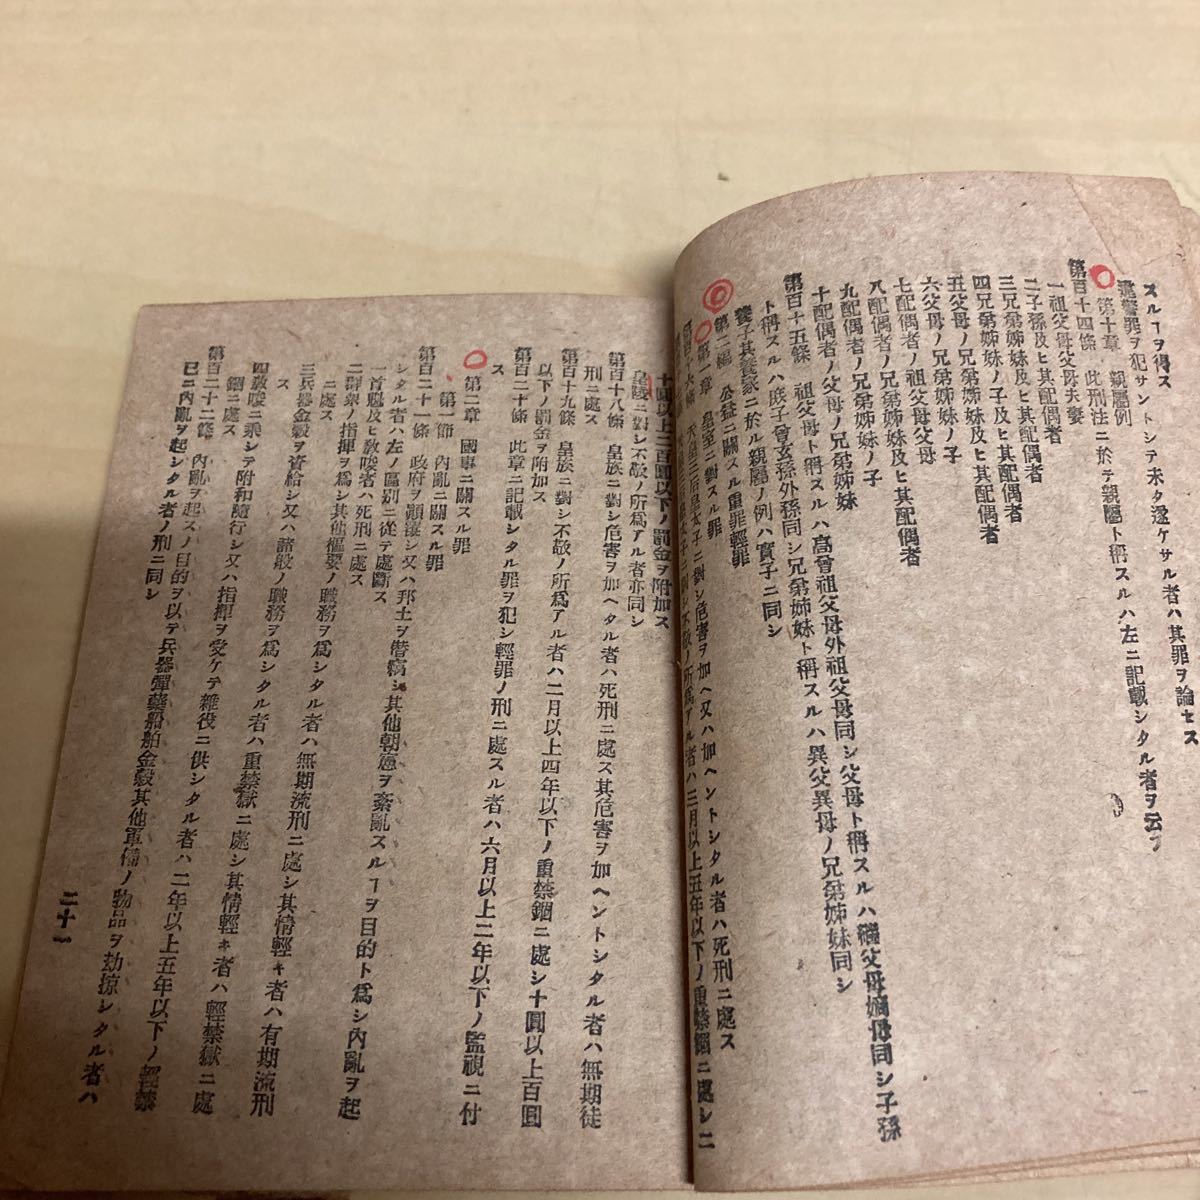 スルヿヲ得ス
違警罪ヲ犯サントシテ未タ遂ケサル者ハ其罪ヲ論セス
第十章 親屬例
第百十四條 此刑法ニ於テ親屬ト稱スルハ左ニ記載シタル者ヲ云フ
一祖父母父母夫妻
二子孫及ヒ其配偶者
三兄弟姉妹及ヒ其配偶者
四兄弟姉妹ノ子及ヒ其配偶者
五父母ノ兄弟姉妹及ヒ其配偶者
六父母ノ兄弟姉妹ノ子
七配偶者ノ祖父母父母
八配偶者ノ兄弟姉妹及ヒ其配偶者
九配偶者ノ兄弟姉妹ノ子
十配偶者ノ父母ノ兄弟姉妹
第百十五條 祖父母ト稱スルハ高曾祖父母外祖父母同シ父母ト稱スルハ繼父母嫡母同シ子孫
ト稱スルハ庶子曾玄孫外孫同シ兄弟姉妹ト稱スルハ異父異母ノ兄弟姉妹同シ
養子其養家ニ於ル親屬ノ例ハ實子ニ同シ
第二編 公益ニ關スル重罪輕罪
第一章 皇室ニ對スル罪
天皇三后皇太子ニ對シ危害ヲ加ヘ又ハ加ヘントシタル者ハ死刑ニ處ス
ニ對シ不敬ノ所爲アル者ハ三月以上五年以下ノ重禁錮ニ處シ二
十圓以上二百圓以下ノ罰金ヲ附加ス
皇陵ニ對シ不敬ノ所爲アル者亦同シ
第百十八條 皇族ニ對シ危害ヲ加ヘタル者ハ死刑ニ處ス其危害ヲ加ヘントシタル者ハ無期徒
刑ニ處ス
第百十九條 皇族ニ對シ不敬ノ所爲アル者ハ二月以上四年以下ノ重禁錮ニ處シ十圓以上百圓
以下ノ罰金ヲ附加ス
第百二十條 此章ニ記載シタル罪ヲ犯シ輕罪ノ刑ニ處スル者ハ六月以上二年以下ノ監視ニ付
ス
第二章 國事ニ關スル罪
第一節 內亂ニ關スル罪
第百二十一條 政府ヲ顚覆シ又ハ邦土ヲ僭竊シ其他朝憲ヲ紊亂スルヿヲ目的ト爲シ內亂ヲ起
シタル者ハ左ノ區別ニ從テ處斷ス
一首魁及ヒ敎唆者ハ死刑ニ處ス
二群衆ノ指揮ヲ爲シ其他樞要ノ職務ヲ爲シタル者ハ無期流刑ニ處シ其情輕キ者ハ有期流刑
ニ處ス
三兵器金穀ヲ資給シ又ハ諸般ノ職務ヲ爲シタル者ハ重禁獄ニ處シ其情輕キ者ハ輕禁獄ニ處
ス
四敎唆ニ乘シテ附和隨行シ又ハ指揮ヲ受ケテ雜役ニ供シタル者ハ二年以上五年以下ノ輕禁
錮ニ處ス
第百二十二條 內亂ヲ起スノ目的ヲ以テ兵器彈藥船舶金穀其他軍備ノ物品ヲ劫掠シタル者ハ
已ニ內亂ヲ起シタル者ノ刑ニ同シ
二十一